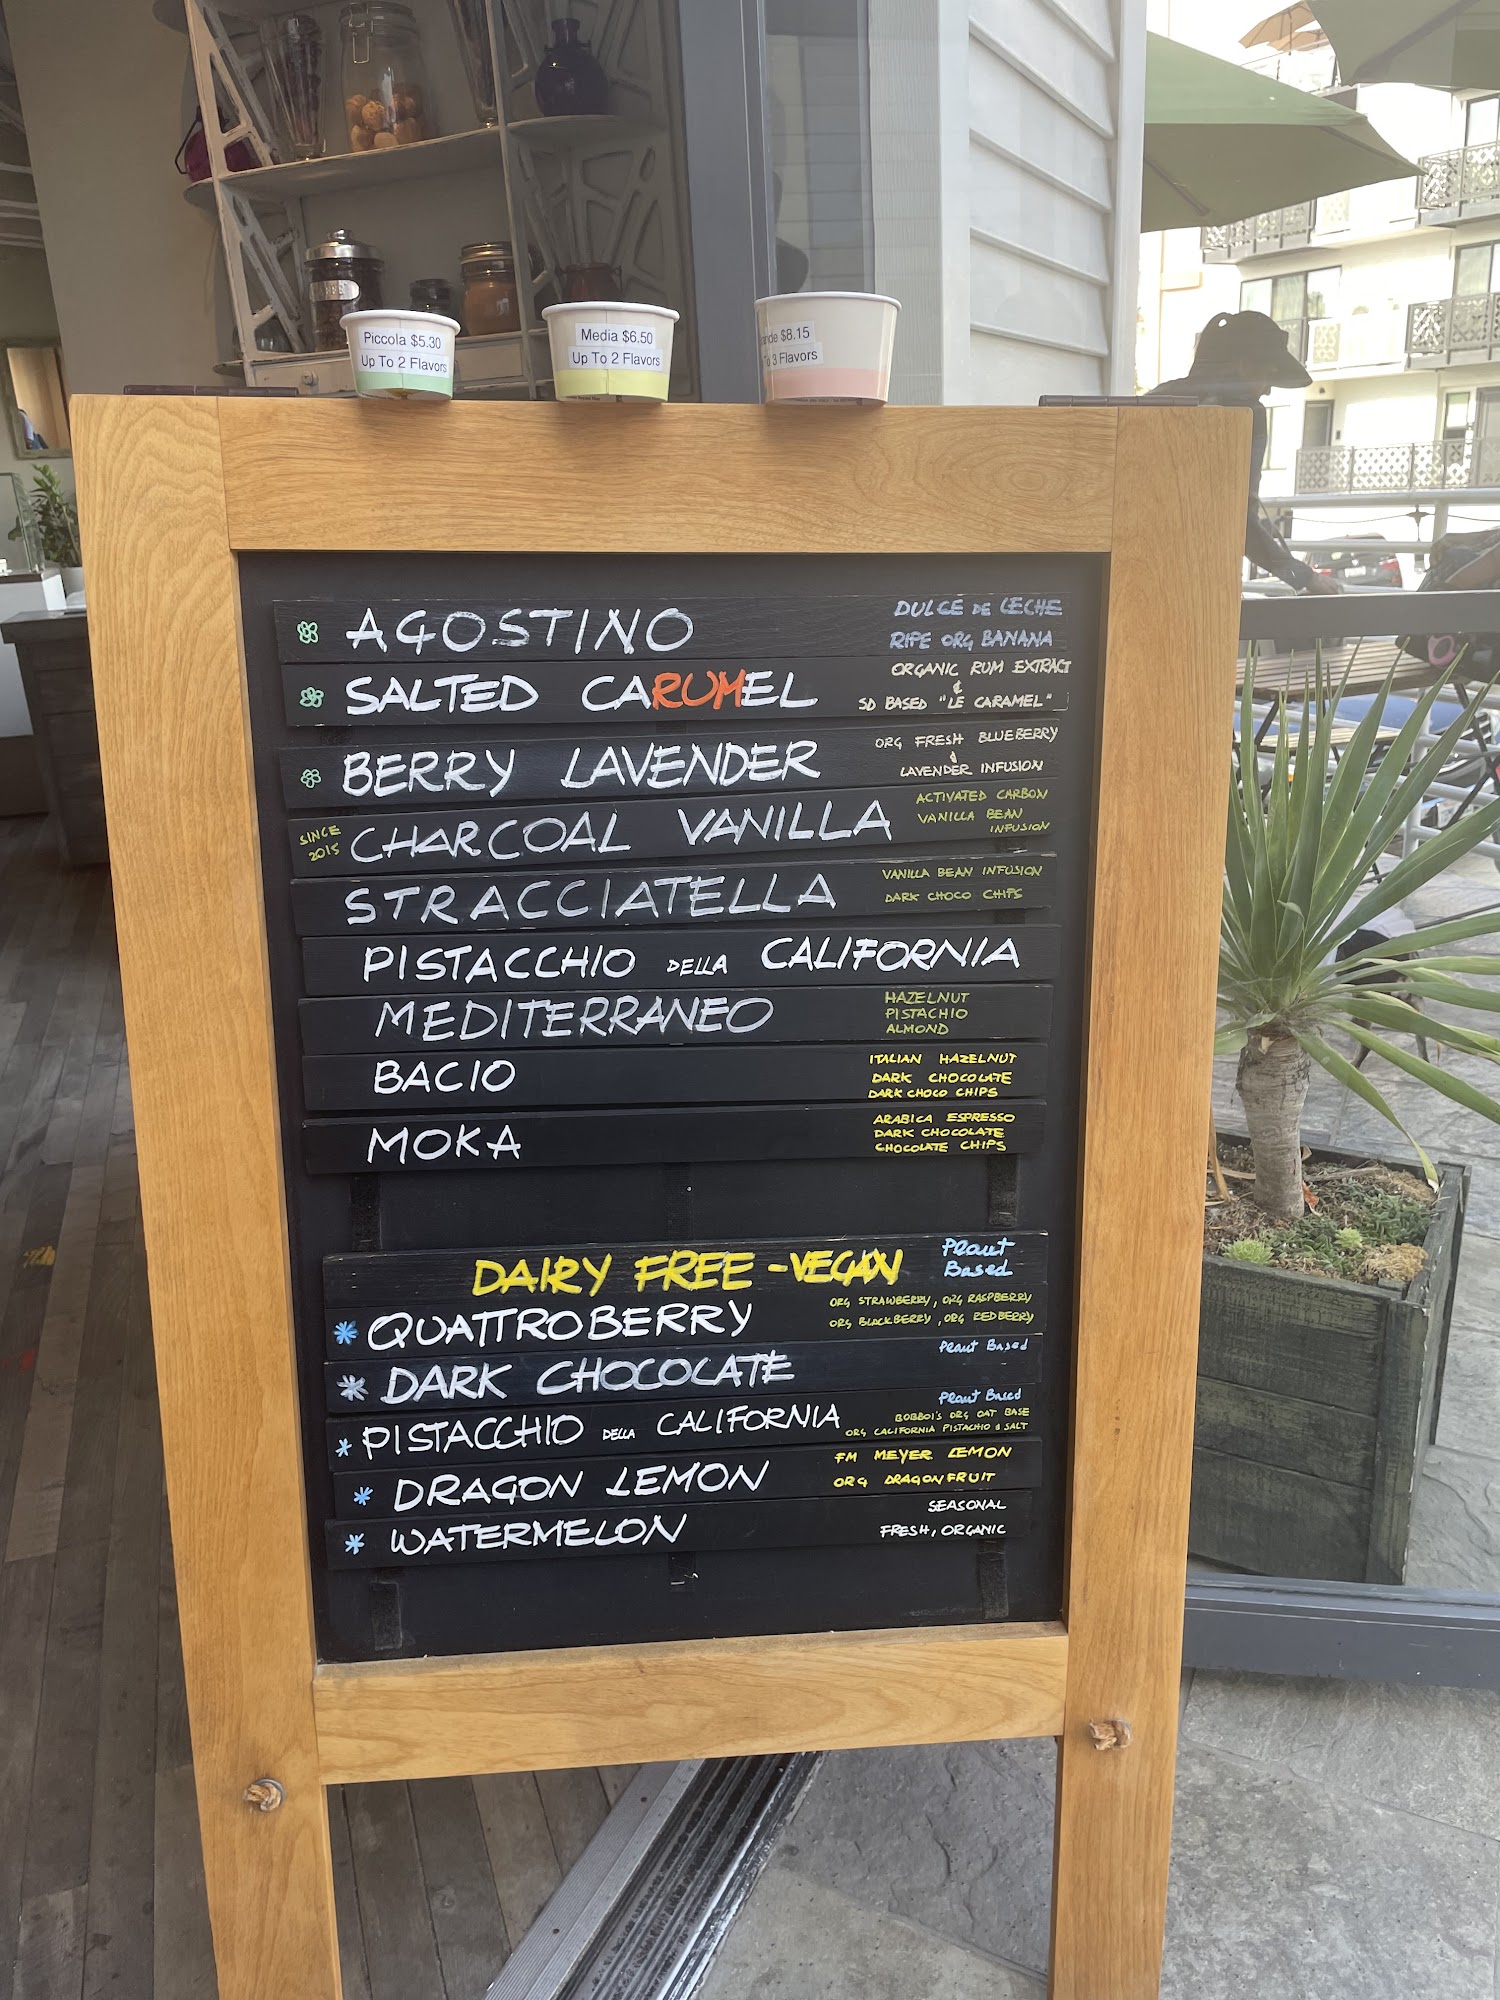 Piccola $5.30
Up To 2 Flavors
Media $6.50
Up To 2 Flavors
$8.15
3 Flavors
AGOSTINO
DULCE DE LECHE
RIPE ORG BANANA
SALTED CARUMEL
ORGANIC RUM EXTRACT
&
SD BASED "LE CARAMEL"
BERRY LAVENDER
ORG FRESH BLUEBERRY
&
LAVENDER INFUSION
SINCE
2015
CHARCOAL VANILLA
ACTIVATED CARBON
VANILLA BEAN
INFUSION
STRACCIATELLA
VANILLA BEAN INFUSION
DARK CHOCO CHIPS
PISTACCHIO DELLA CALIFORNIA
MEDITERRANEO
HAZELNUT
PISTACHIO
ALMOND
BACIO
ITALIAN HAZELNUT
DARK CHOCOLATE
DARK CHOCO CHIPS
MOKA
ARABICA ESPRESSO
DARK CHOCOLATE
CHOCOLATE CHIPS
DAIRY FREE - VEGAN
Plant
Based
QUATTROBERRY
ORG STRAWBERRY, ORG RASPBERRY
ORG BLACKBERRY, ORG REDBERRY
DARK CHOCOLATE
Plant Based
PISTACCHIO DELLA CALIFORNIA
Plant Based
BOBBOI'S ORG OAT BASE
ORG CALIFORNIA PISTACHIO & SALT
DRAGON LEMON
FM MEYER LEMON
ORG DRAGONFRUIT
WATERMELON
SEASONAL
FRESH, ORGANIC